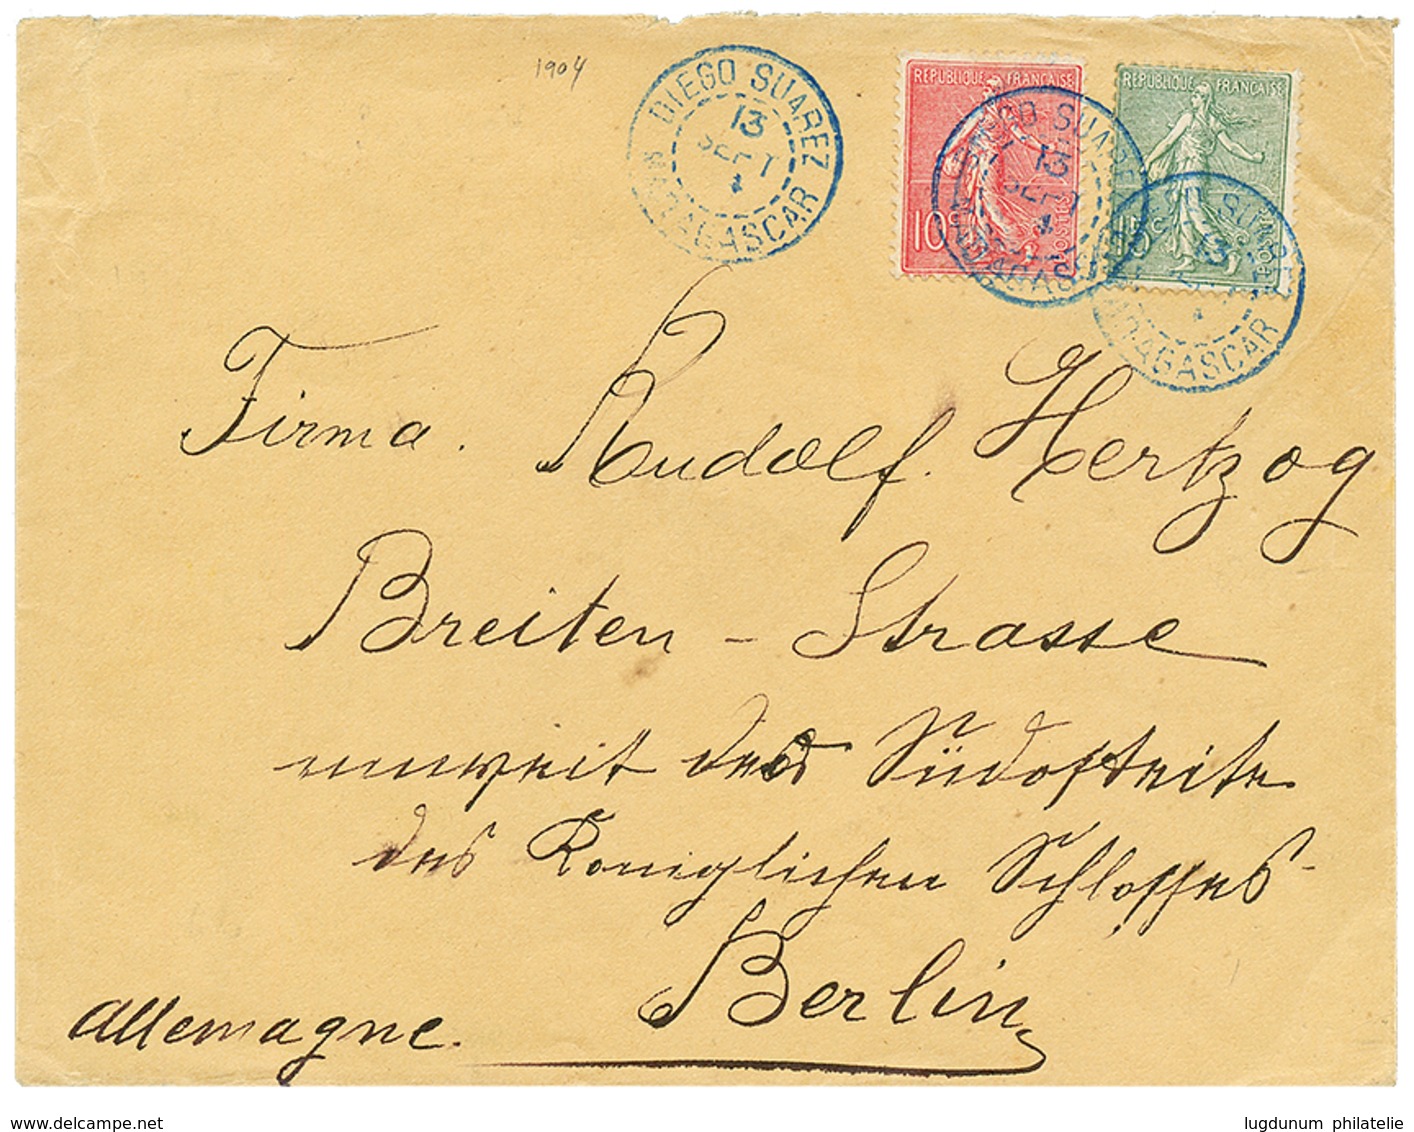 1904
DIEGO SUAREZ
13
SEPT
4
MADAGASCAR
REPUBLIQUE FRANÇAISE
10c
POSTES
REPUBLIQUE FRANÇAISE
15c
POSTES
13
SEPT
4
MADAGASCAR
13
MADAGASCAR
Firma. Rudolf. Hertzog
Breiten - Strasse
unweit der Südostseite
des Königlichen Schlosses
Berlin
Allemagne.
www.delcampe.net
lugdunum philatelie